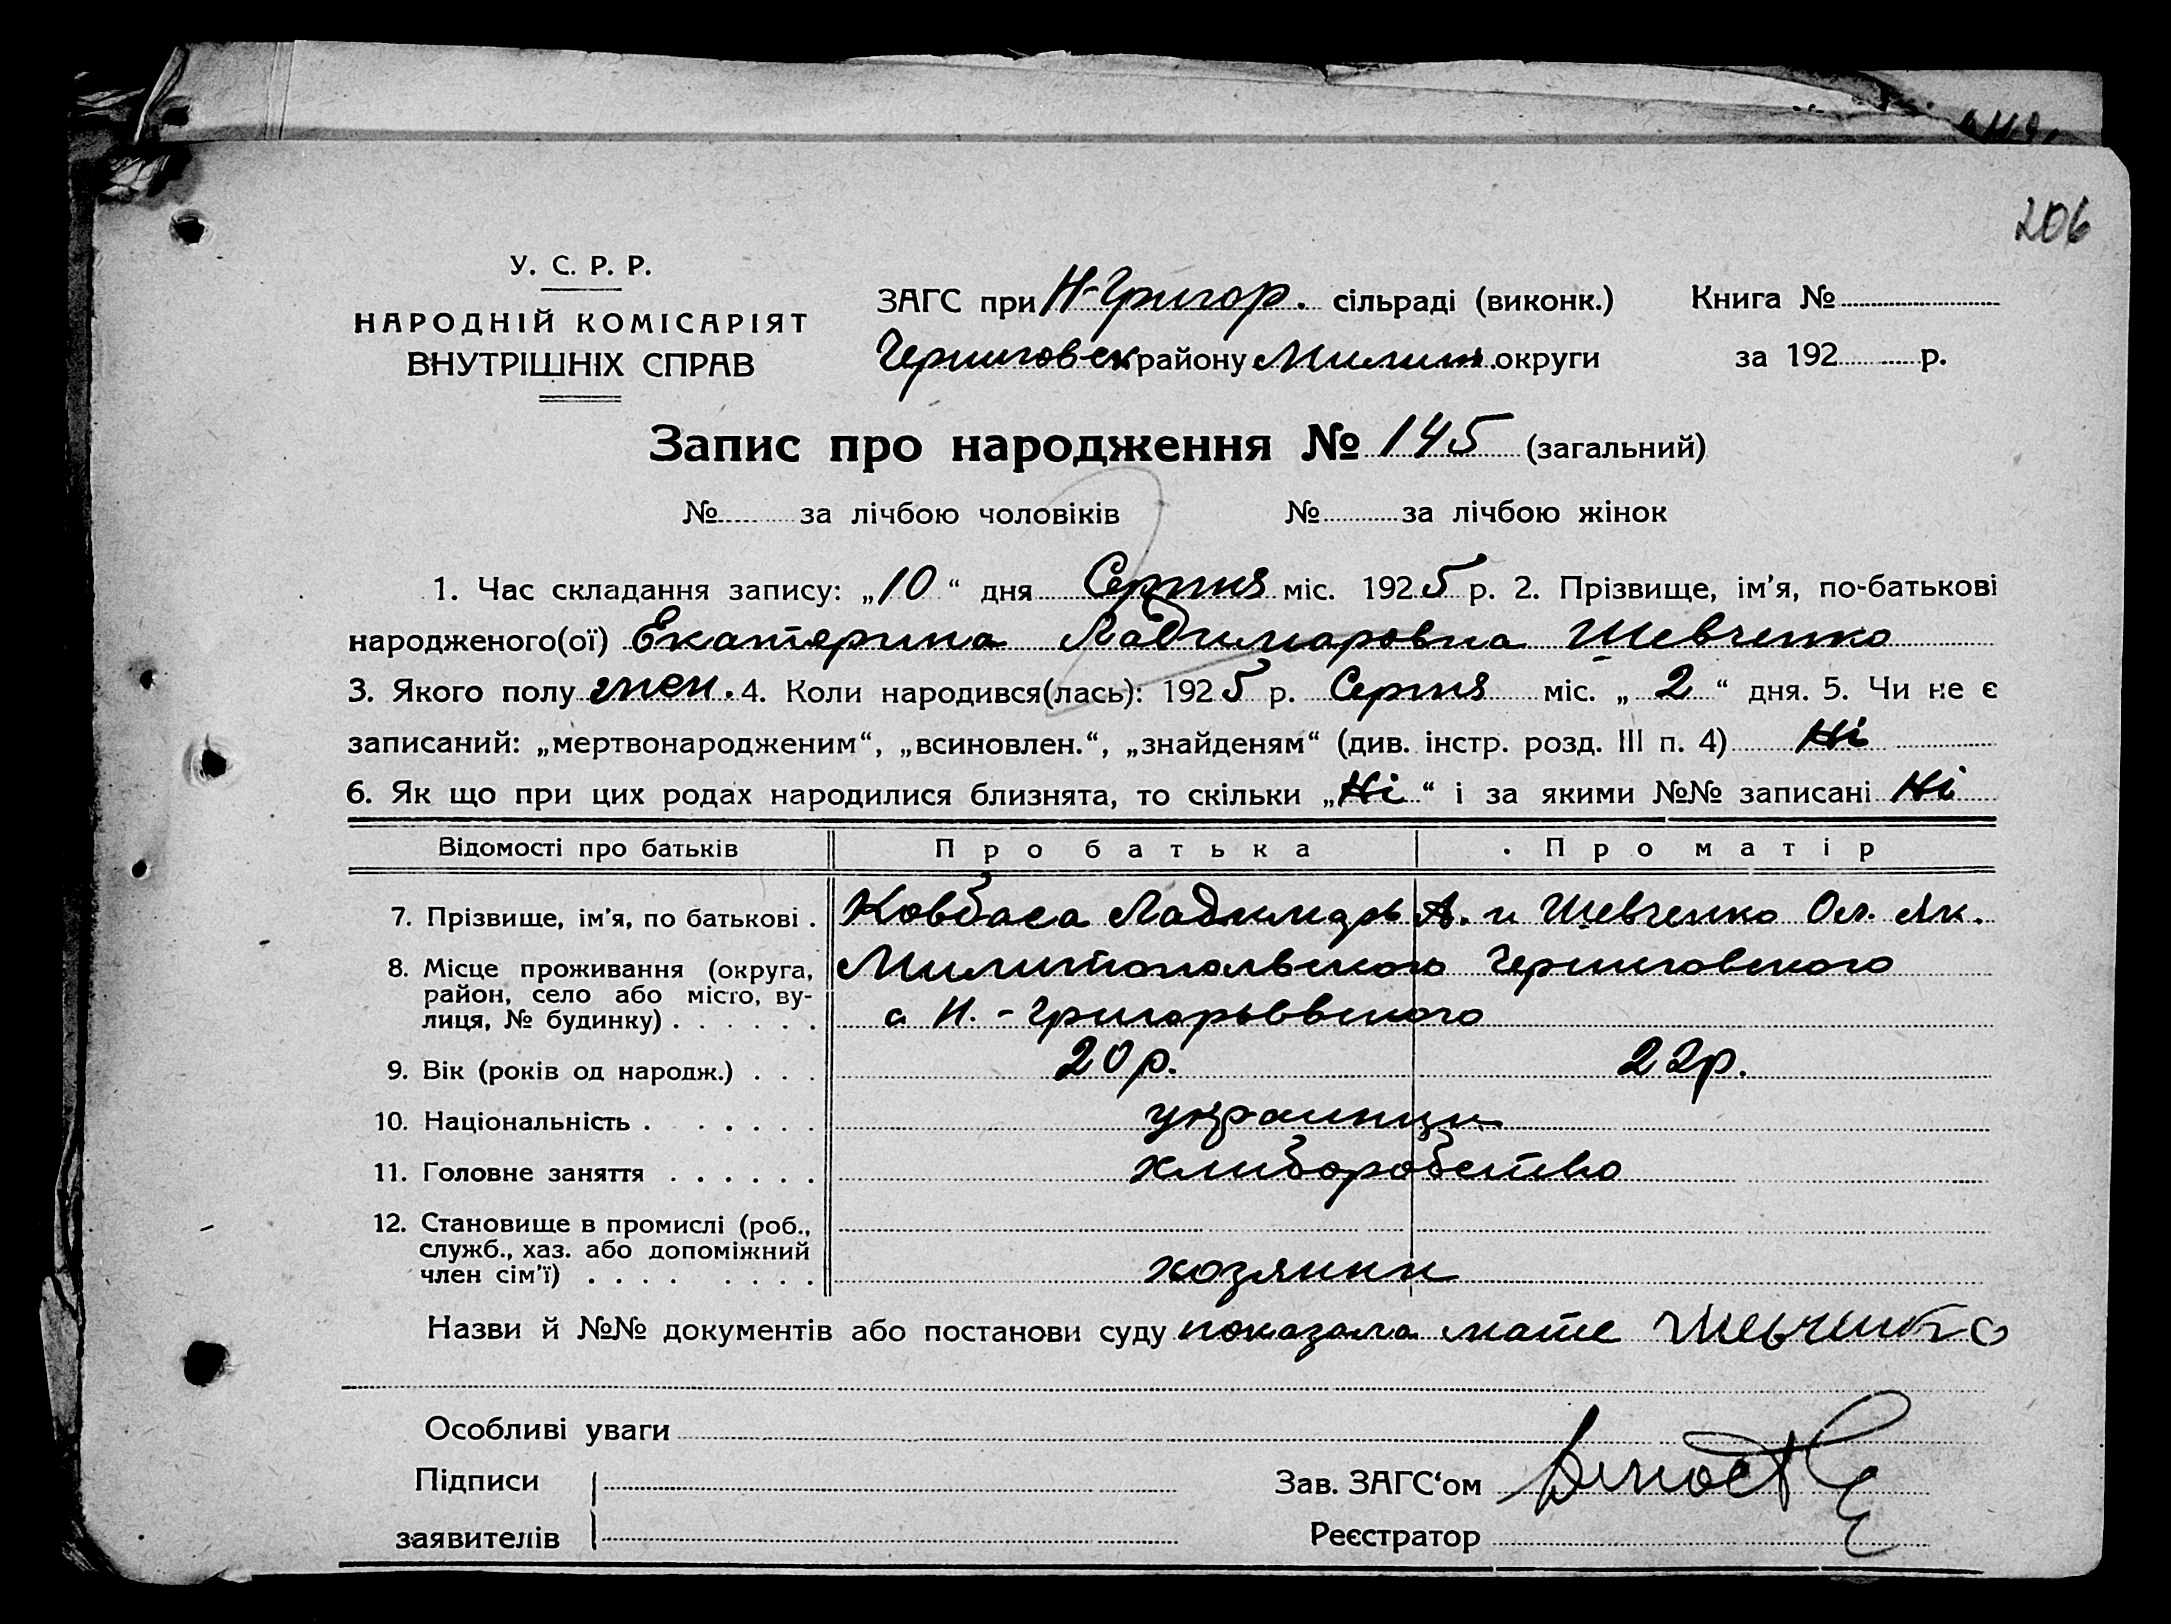 206
У. С. Р. Р.
НАРОДНІЙ КОМІСАРІЯТ
ВНУТРІШНІХ СПРАВ
ЗАГС при Н-Григор. сільраді (виконк.) Книга №
Черниговск району Милит. округи за 192 р.
Запис про народження № 145 (загальний)
№ за лічбою чоловіків № за лічбою жінок
1. Час складання запису: „10“ дня Серпня міс. 1925 р. 2. Прізвище, ім’я, по-батькові
народженого(ої) Екатерина Ладимаровна Шевченко
3. Якого полу жен. 4. Коли народився(лась): 1925 р. Серпня міс. „2“ дня. 5. Чи не є
записаний: „мертвонародженим“, „всиновлен.“, „знайденям“ (див. інстр. розд. III п. 4) Ні
6. Як що при цих родах народилися близнята, то скільки „Ні“ і за якими №№ записані Ні
Відомості про батьків Про батька Про матір
7. Прізвище, ім’я, по батькові . Ковбаса Ладимар А. и Шевченко Ол. Як.
8. Місце проживання (округа, Милитопольского Черниговского
район, село або місто, ву-
лиця, № будинку) . . . . . . с Н. - Григорьввского
9. Вік (років од народж.) . . . 20 р. 22 р.
10. Національність . . . . . . украинци
11. Головне заняття . . . . . . хлиборобство
12. Становище в промислі (роб.,
служб., хаз. або допоміжний
член сім’ї) . . . . . . . . хозяини
Назви й №№ документів або постанови суду показала мате Шевченко
Особливі уваги
Підписи Зав. ЗАГС‘ом
заявителів Реєстратор